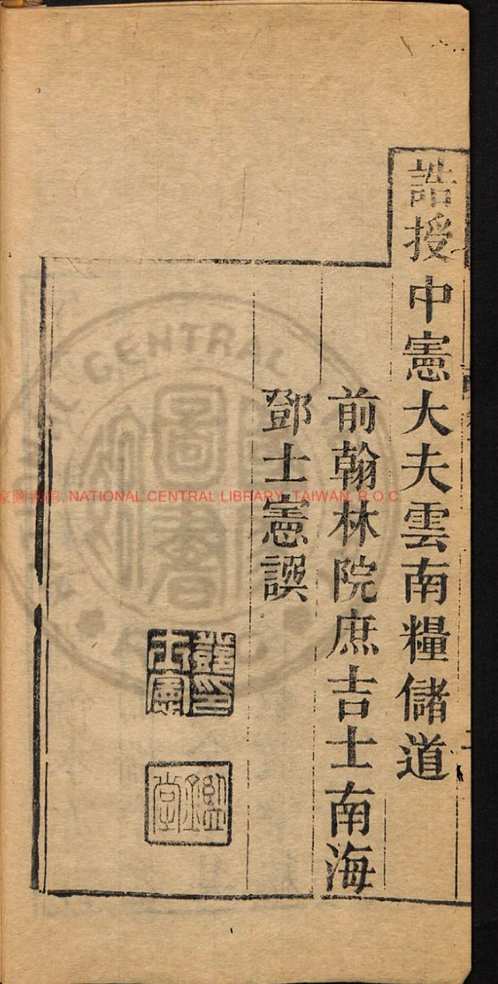 誥授中憲大夫雲南糧儲道
前翰林院庶吉士南海
鄧士憲譔
鄧士憲印
鑑堂
家圖書館, NATIONAL CENTRAL LIBRARY, TAIWAN, R.O.C
CENTRAL